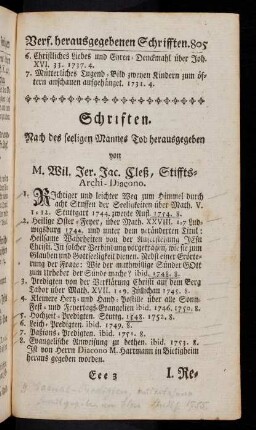 Verf. herausgegebenen Schrifften. 805
6. Christliches Liebes und Ehren-Denckmahl über Joh.
XVI. 33. 1737. 4.
7. Mütterliches Tugend-Bild zweyen Kindern zum öf-
tern anschauen aufgehänget. 1731. 4.
Schriften.
Nach des seeligen Mannes Tod herausgegeben
von
M. Wil. Jer. Jac. Cleß, Stiffts-
Archi-Diacono.
1. Richtiger und leichter Weg zum Himmel durch
acht Stuffen der Seeligkeiten über Math. V.
1-12. Stuttgart 1744. zweyte Aufl. 1754. 8.
2. Heilige Oster-Feyer, über Math. XXVIII. 1-7 Lud-
wigsburg 1744. und unter dem veränderten Titul:
Heilsame Wahrheiten von der Auferstehung JEsu
Christi. In solcher Verbindung vorgetragen, wie sie zum
Glauben und Gottseeligkeit dienen. Nebst einer Erörte-
rung der Frage: Wie der nothwillige Sünder GOtt
zum Urheber der Sünde mache? ibid. 1748. 8.
3. Predigten von der Verklärung Christi auf dem Berg
Tabor über Math. XVII. 1-9. Züllichau 1745. 8.
4. Kleinere Hertz- und Hand-Postille über alle Sonn-
Fest- und Feyertags-Evangelien ibid. 1746. 1750. 8.
5. Hochzeit-Predigten. Stuttg. 1548. 1752. 8.
6. Leich-Predigten. ibid. 1749. 8.
7. Passions-Predigten. ibid. 1751. 8.
8. Evangelische Anweisung zu bethen. ibid. 1751. 8.
Ist von Herrn Diacono M. Hartmann in Bietigheim
heraus gegeben worden.
Eee 3 I. Re-